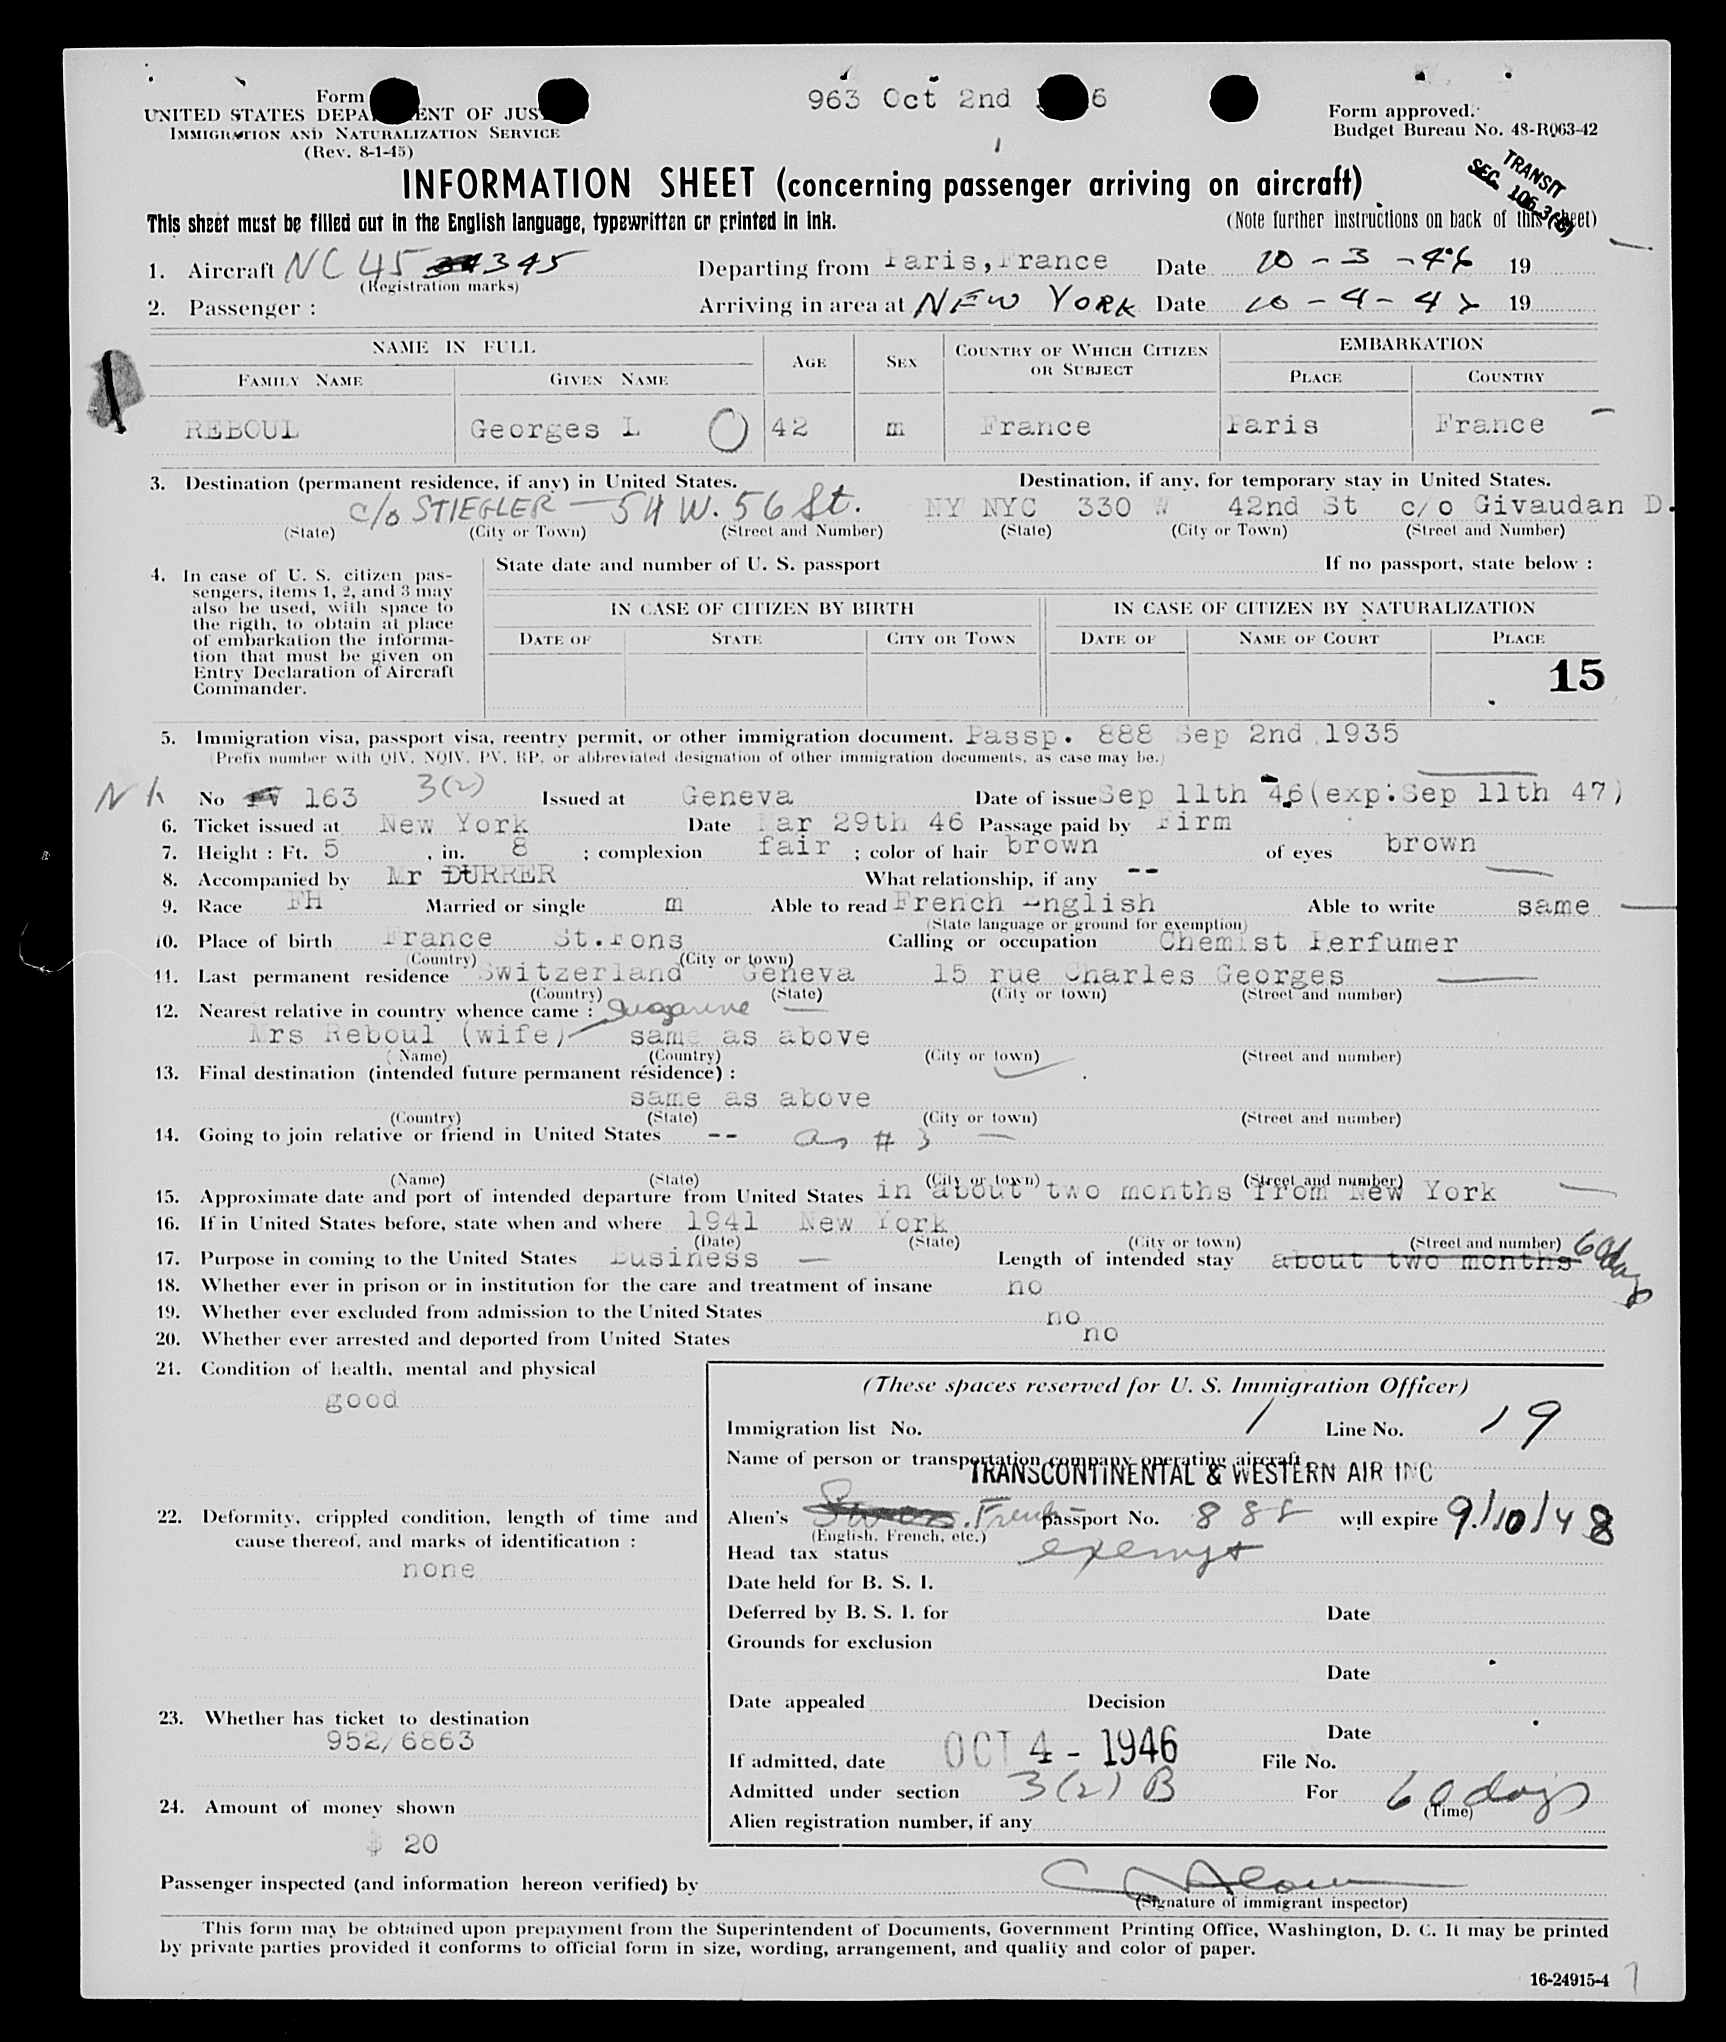 963 Oct 2nd 6
Form
UNITED STATES DEPA ENT OF JUS
IMMIGRATION AND NATURALIZATION SERVICE
(Rev. 8-1-45)
Form approved.
Budget Bureau No. 48-R063-42
INFORMATION SHEET (concerning passenger arriving on aircraft)
TRANSIT
SEC. 106.3(B)
This sheet must be filled out in the English language, typewritten or printed in ink.
(Note further instructions on back of this sheet)
1. Aircraft NC 45 345 Departing from Paris, France Date 10-3-46 19
(Registration marks)
2. Passenger : Arriving in area at NEW YORK Date 10-4-4 19
NAME IN FULL AGE SEX COUNTRY OF WHICH CITIZEN OR SUBJECT EMBARKATION
FAMILY NAME GIVEN NAME PLACE COUNTRY
REBOUL Georges L 42 m France Paris France
3. Destination (permanent residence, if any) in United States. Destination, if any, for temporary stay in United States.
c/o STIEGLER - 54 W. 56 St. NY NYC 330 W 42nd St c/o Givaudan D.
(State) (City or Town) (Street and Number) (State) (City or Town) (Street and Number)
4. In case of U. S. citizen pas-
sengers, items 1, 2, and 3 may
also be used, with space to
the rigth, to obtain at place
of embarkation the informa-
tion that must be given on
Entry Declaration of Aircraft
Commander.
State date and number of U. S. passport If no passport, state below :
IN CASE OF CITIZEN BY BIRTH IN CASE OF CITIZEN BY NATURALIZATION
DATE OF STATE CITY OR TOWN DATE OF NAME OF COURT PLACE
15
5. Immigration visa, passport visa, reentry permit, or other immigration document. Passp. 888 Sep 2nd 1935
(Prefix number with QIV, NQIV, PV, RP, or abbreviated designation of other immigration documents, as case may be.)
No PV 163 3(2) Issued at Geneva Date of issue Sep 11th 46 (exp:Sep 11th 47)
6. Ticket issued at New York Date Mar 29th 46 Passage paid by Firm
7. Height : Ft. 5 , in. 8 ; complexion fair ; color of hair brown of eyes brown
8. Accompanied by Mr DURRER What relationship, if any --
9. Race FH Married or single m Able to read French English Able to write same
(State language or ground for exemption)
10. Place of birth France St.Fons Calling or occupation Chemist Perfumer
(Country) (City or town)
11. Last permanent residence Switzerland Geneva 15 rue Charles Georges
(Country) (State) (City or town) (Street and number)
12. Nearest relative in country whence came : Suzanne
Mrs Reboul (wife) same as above
(Name) (Country) (City or town) (Street and number)
13. Final destination (intended future permanent résidence) :
same as above
(Country) (State) (City or town) (Street and number)
14. Going to join relative or friend in United States -- as # 3
(Name) (State) (City or town) (Street and number)
15. Approximate date and port of intended departure from United States in about two months from New York
16. If in United States before, state when and where 1941 New York
(Date) (State) (City or town) (Street and number)
17. Purpose in coming to the United States Business Length of intended stay about two months 60 days
18. Whether ever in prison or in institution for the care and treatment of insane no
19. Whether ever excluded from admission to the United States no
20. Whether ever arrested and deported from United States no
21. Condition of health, mental and physical
good
22. Deformity, crippled condition, length of time and
cause thereof, and marks of identification :
none
23. Whether has ticket to destination
952/6863
24. Amount of money shown
$ 20
(These spaces reserved for U. S. Immigration Officer)
Immigration list No. 1 Line No. 19
Name of person or transportation company operating aircraft
TRANSCONTINENTAL & WESTERN AIR INC
Alien's French passport No. 888 will expire 9/10/48
(English, French, etc.)
Head tax status exempt
Date held for B. S. I.
Deferred by B. S. I. for Date
Grounds for exclusion
Date
Date appealed Decision
Date
If admitted, date OCT 4 - 1946 File No.
Admitted under section 3(2) B For 60 days
(Time)
Alien registration number, if any
Passenger inspected (and information hereon verified) by
(Signature of immigrant inspector)
This form may be obtained upon prepayment from the Superintendent of Documents, Government Printing Office, Washington, D. C. It may be printed
by private parties provided it conforms to official form in size, wording, arrangement, and quality and color of paper.
16-24915-4